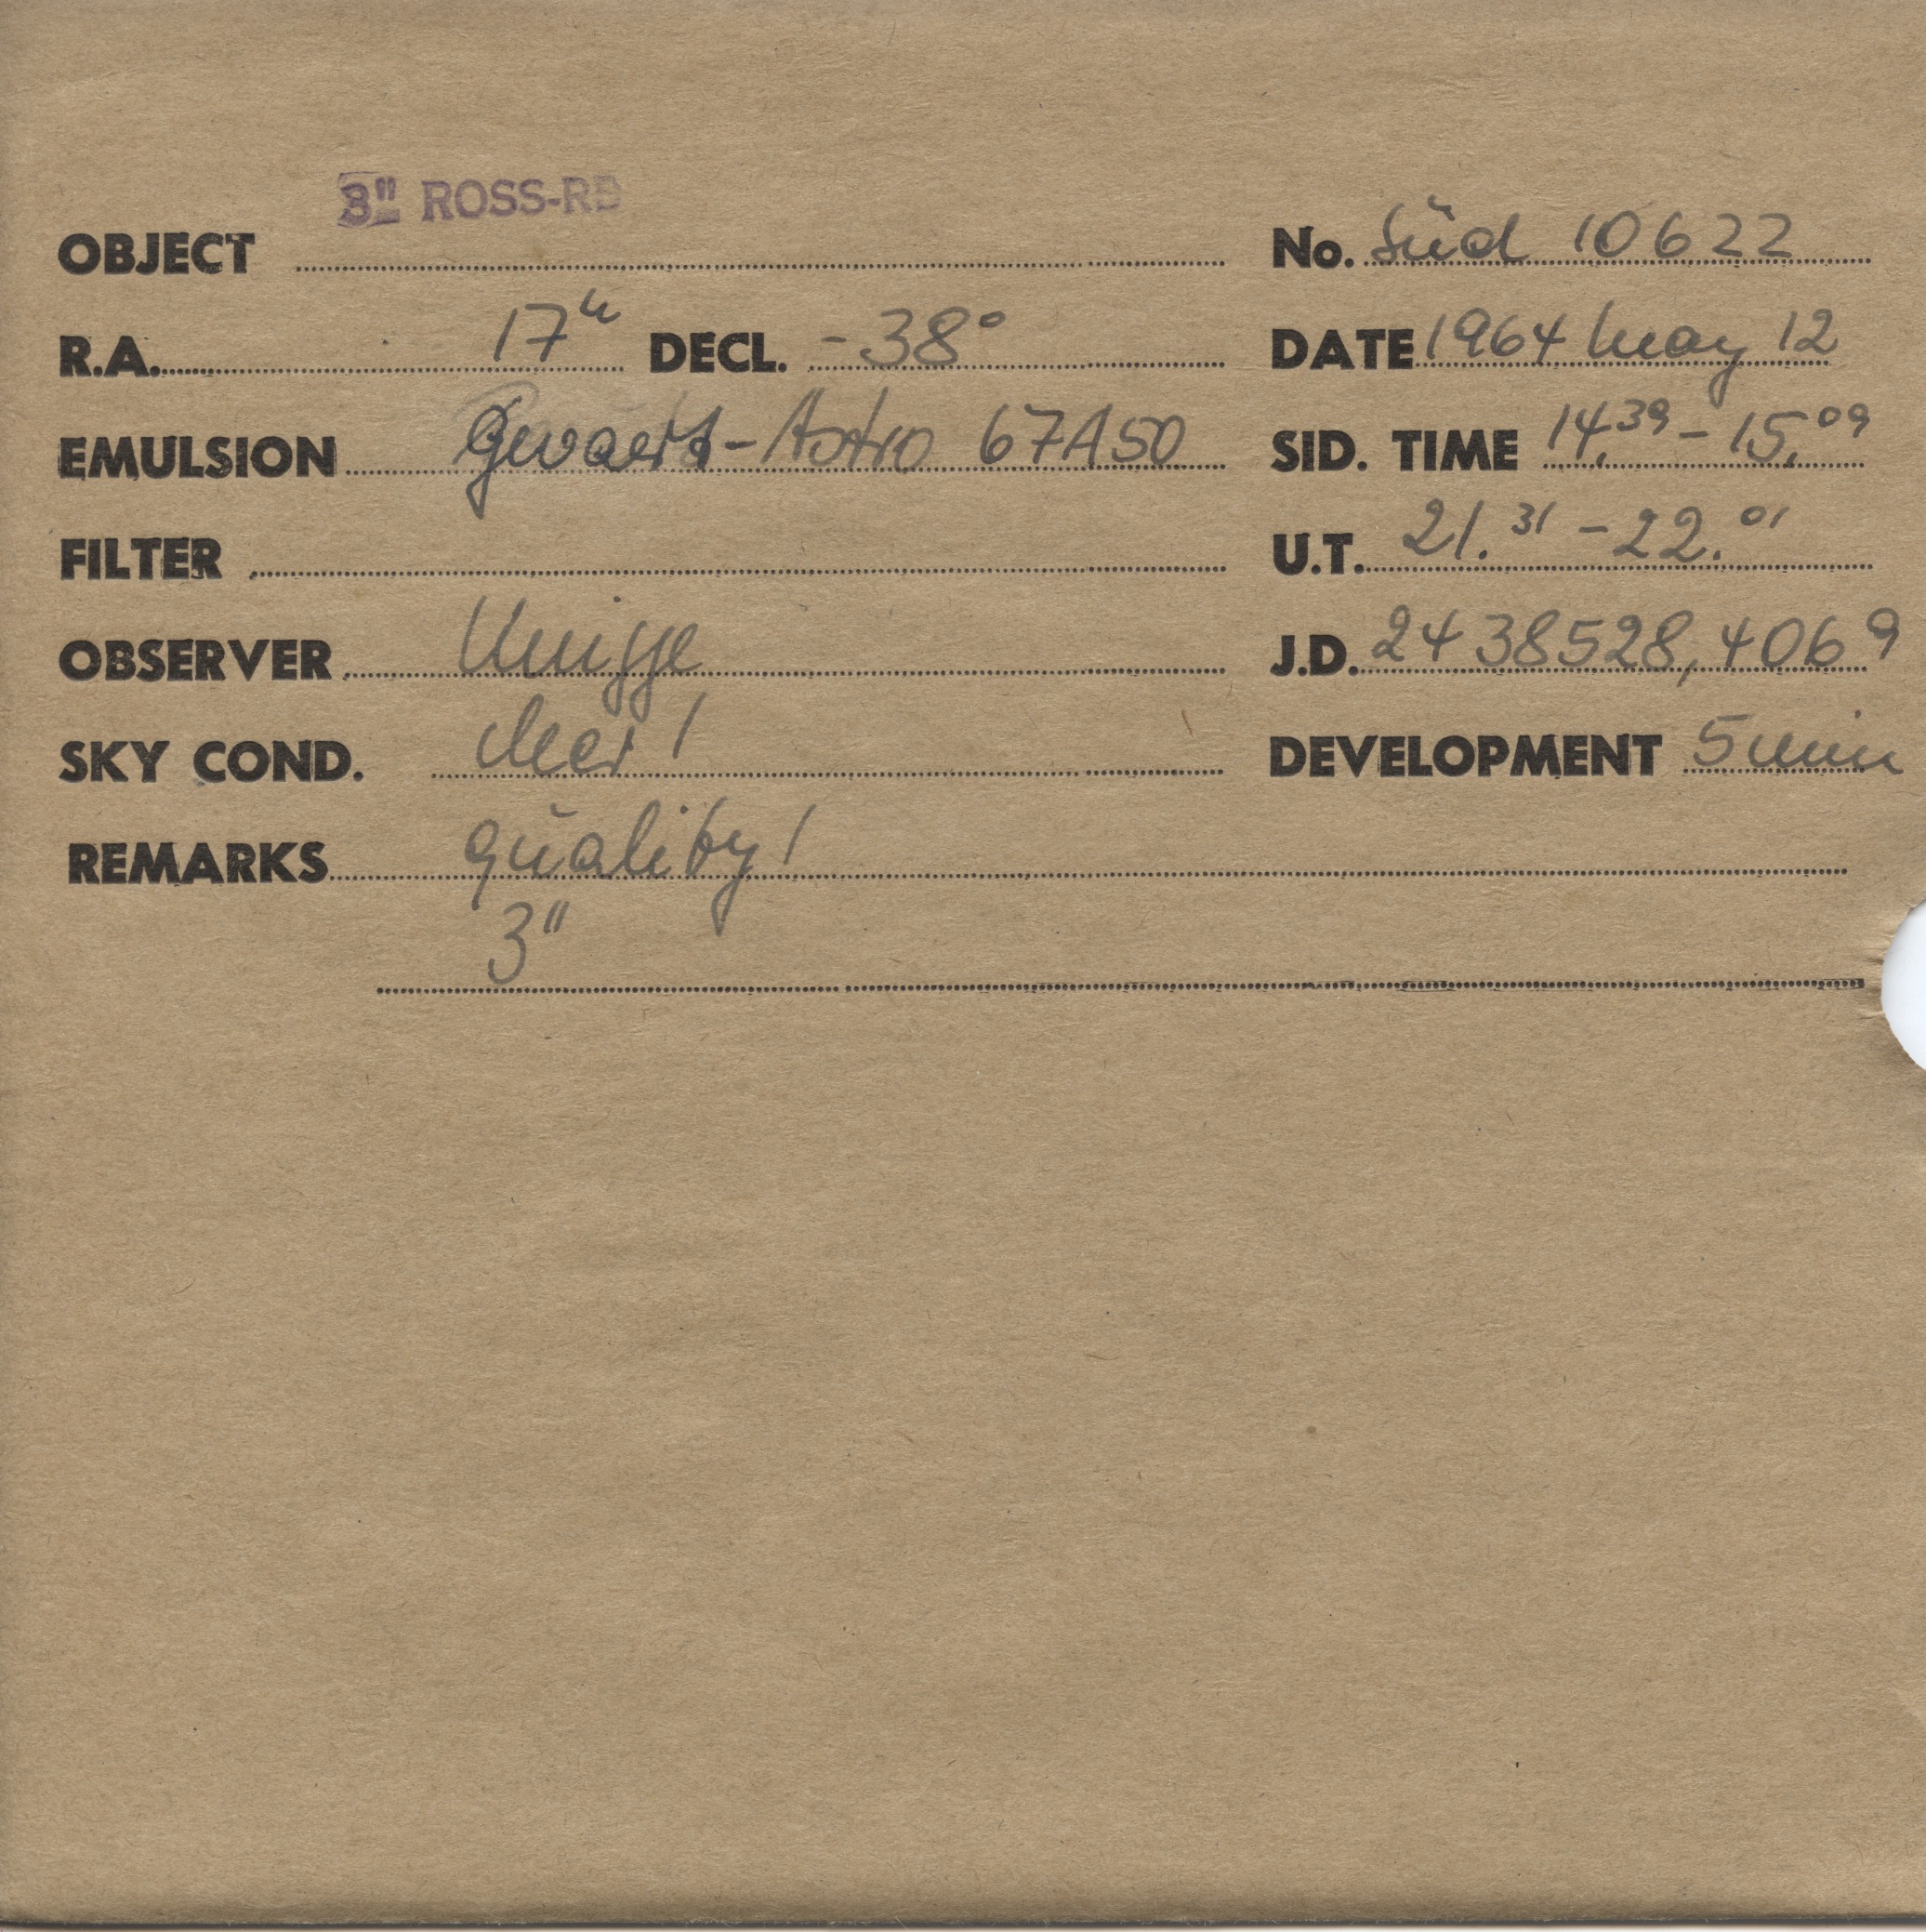 3" ROSS-RB
OBJECT No. Süd 10622
R.A. 17h DECL. -38° DATE 1964 May 12
EMULSION Gevaert-Astro 67A50 SID. TIME 14.39 - 15.09
FILTER U.T. 21.31 - 22.01
OBSERVER Knigge J.D. 2438528,4069
SKY COND. clear! DEVELOPMENT 5 min
REMARKS quality!
3"